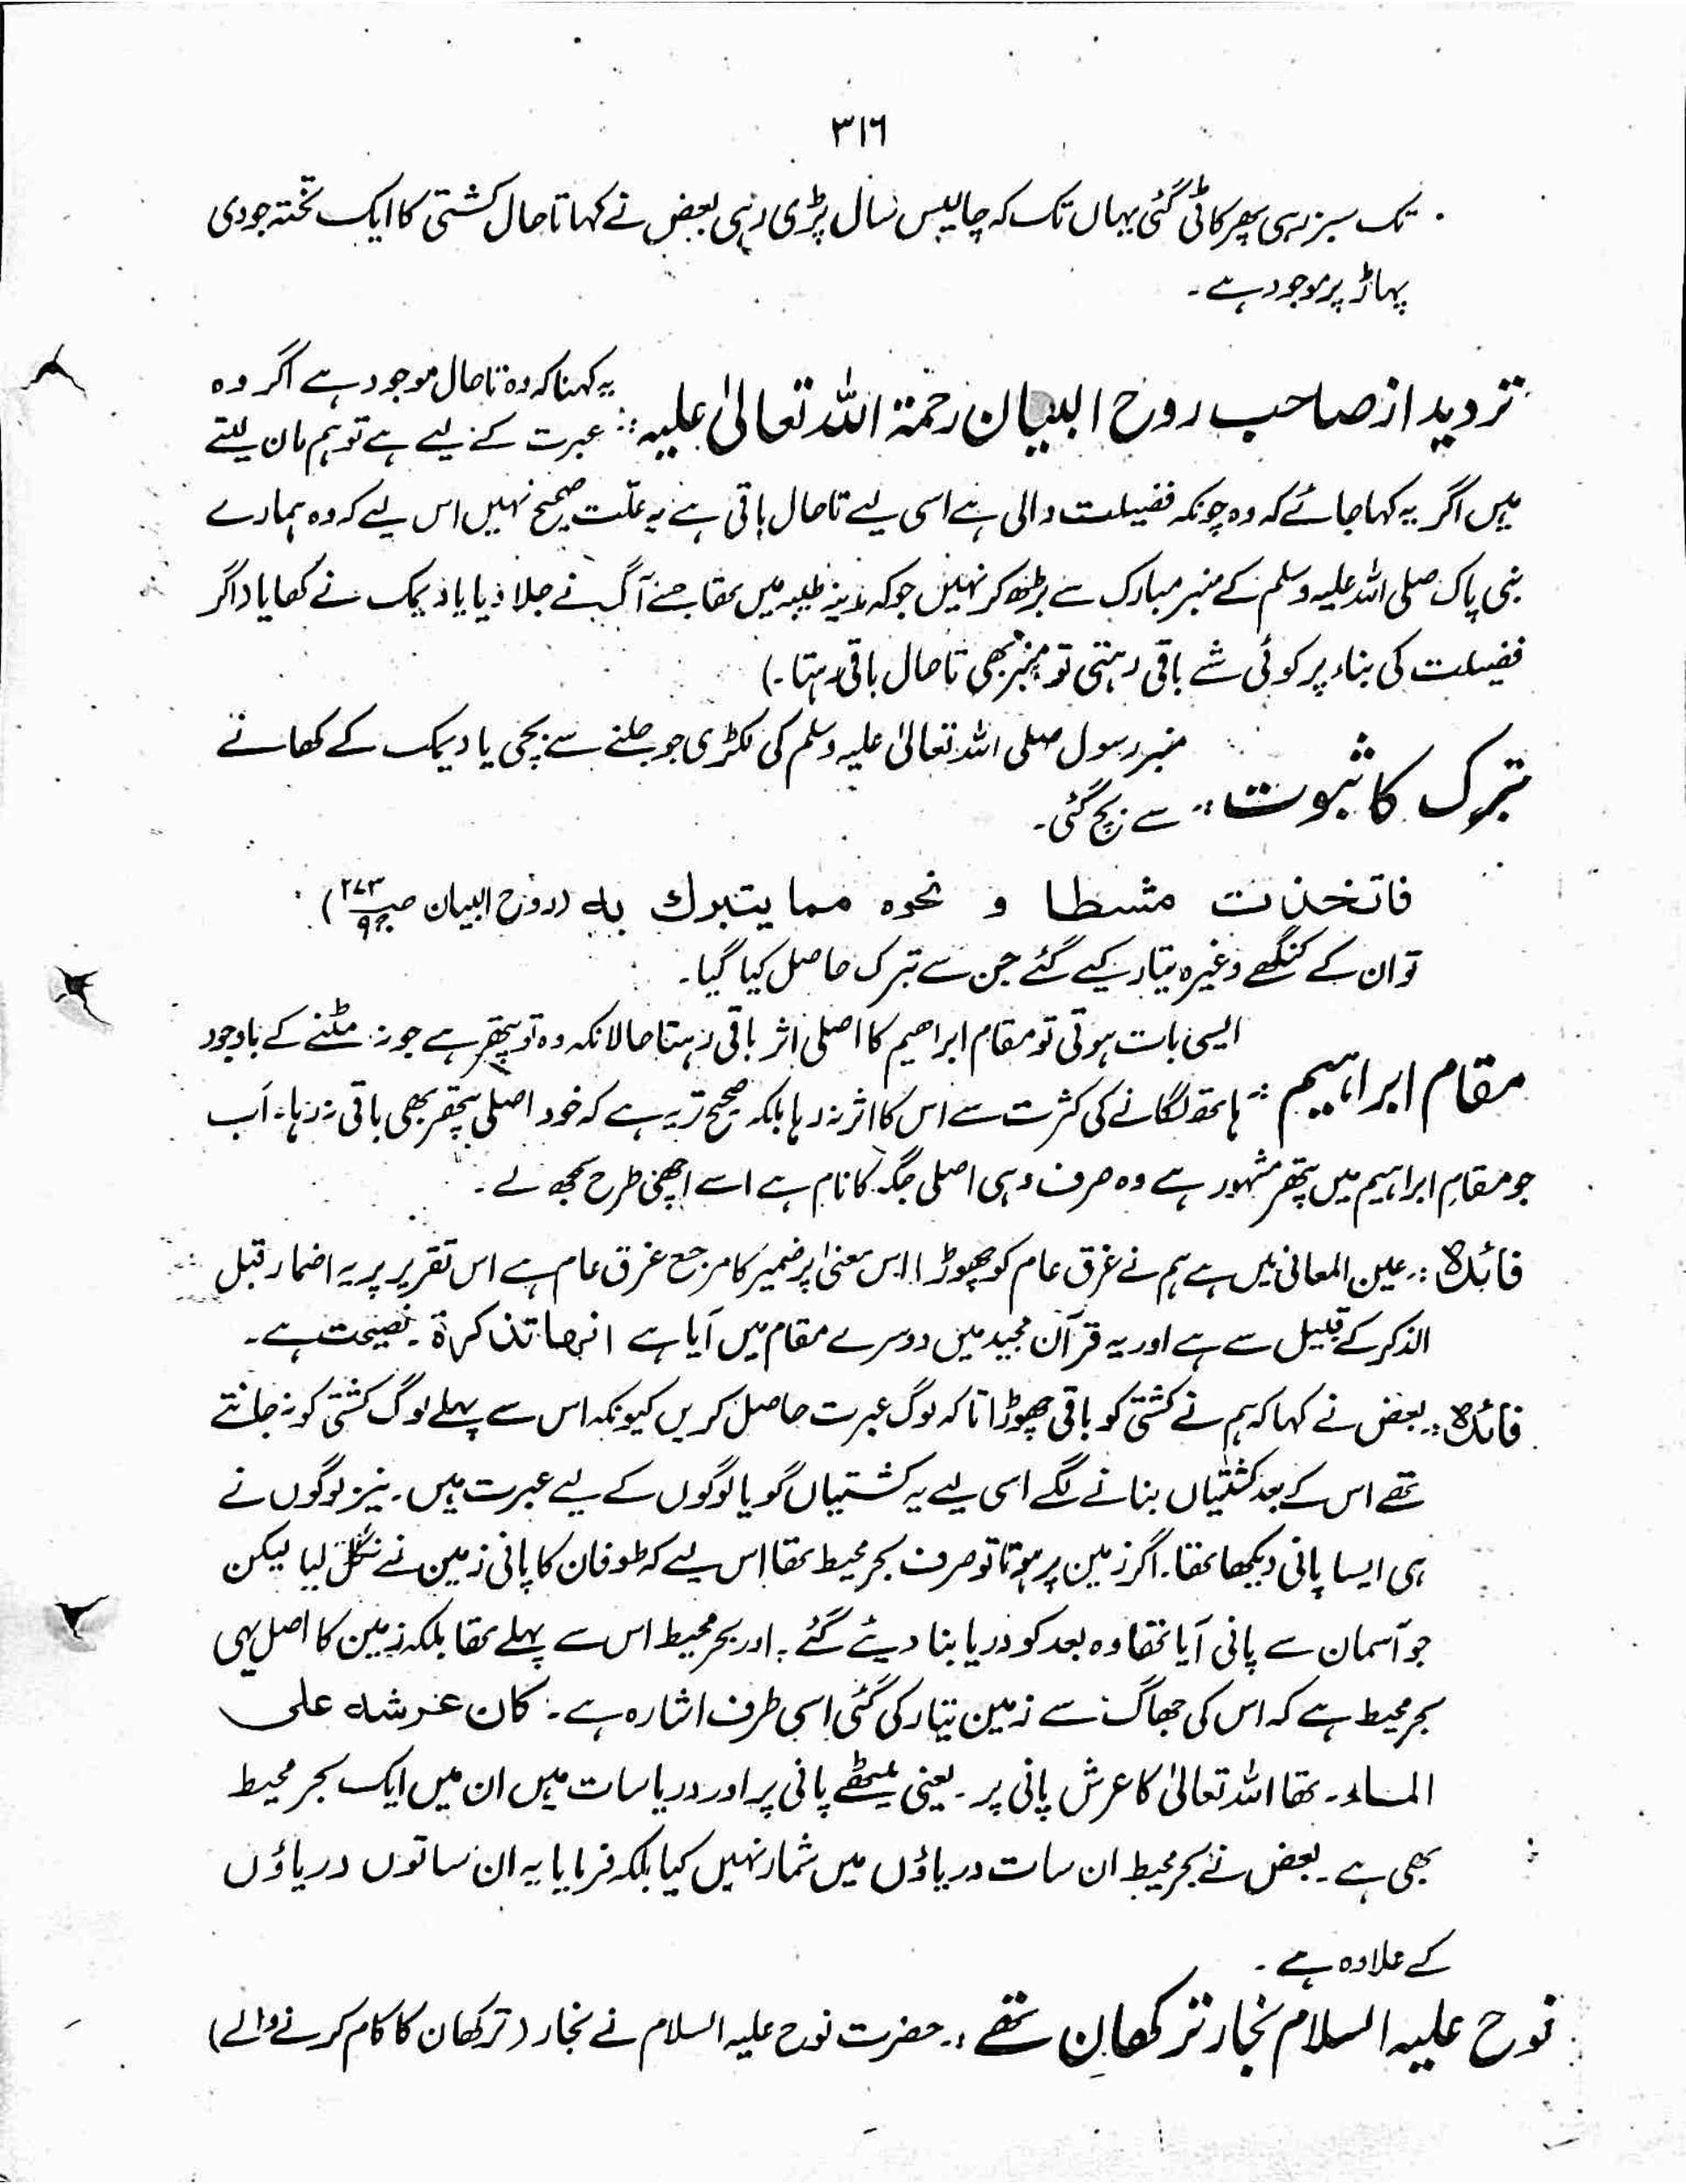 ۳۱۶
تک سبز رہی پھر کاٹی گئی یہاں تک کہ چالیس سال پڑی رہی بعض نے کہا تا حال کشتی کا ایک تختہ جودی
پہاڑ پر موجود ہے۔
تردید از صاحب روح البیان رحمۃ اللہ تعالیٰ علیہ :: یہ کہنا کہ وہ تا حال موجود ہے اگر وہ
عبرت کے لیے ہے تو ہم مان لیتے
ہیں اگر یہ کہا جائے کہ وہ چونکہ فضیلت والی ہے اسی لیے تا حال باقی ہے یہ علّت صحیح نہیں اس لیے کہ وہ ہمارے
نبی پاک صلی اللہ علیہ وسلم کے منبر مبارک سے بڑھ کر نہیں جو کہ مدینہ طیبہ میں تھا جسے آگ نے جلا دیا یا دیمک نے کھایا (اگر
فضیلت کی بناء پر کوئی شے باقی رہتی تو منبر بھی تا حال باقی رہتا۔)
تبرک کا ثبوت :: منبر رسول صلی اللہ تعالیٰ علیہ وسلم کی لکڑی جو جلنے سے بچی یا دیمک کے کھانے
سے بچ گئی۔
فاتخذت مشطا و نحوه مما يتبرك به (روح البیان صـ ۲۷۳ جـ ۹)
تو ان کے کنگھے وغیرہ تیار کیے گئے جن سے تبرک حاصل کیا گیا۔
مقام ابراہیم :: ایسی بات ہوتی تو مقام ابراھیم کا اصلی اثر باقی رہتا حالانکہ وہ تو پتھر ہے جو نہ مٹنے کے باوجود
ہاتھ لگانے کی کثرت سے اس کا اثر نہ رہا بلکہ صحیح تر یہ ہے کہ خود اصلی پتھر بھی باقی نہ رہا۔ اَب
جو مقامِ ابراہیم میں پتھر مشہور ہے وہ صرف وہی اصلی جگہ کا نام ہے اسے اچھی طرح سمجھ لے۔
فائدہ :: عین المعانی میں ہے ہم نے غرق عام کو چھوڑا۔ اس معنیٰ پر ضمیر کا مرجع غرق عام ہے اس تقریر پر یہ اضمار قبل
الذکر کے قبیل سے ہے اور یہ قرآن مجید میں دوسرے مقام میں آیا ہے انها تذكرة ۔ نصیحت ہے۔
فائدہ :: بعض نے کہا کہ ہم نے کشتی کو باقی چھوڑا تا کہ لوگ عبرت حاصل کریں کیونکہ اس سے پہلے لوگ کشتی کو نہ جانتے
تھے اس کے بعد کشتیاں بنانے لگے اسی لیے یہ کشتیاں گویا لوگوں کے لیے عبرت ہیں۔ نیز لوگوں نے
ہی ایسا پانی دیکھا تھا۔ اگر زمین پر ہوتا تو صرف بحر محیط تھا اس لیے کہ طوفان کا پانی زمین نے نگل لیا لیکن
جو آسمان سے پانی آیا تھا وہ بعد کو دریا بنا دیئے گئے۔ اور بحر محیط اس سے پہلے تھا بلکہ زمین کا اصل یہی
بحر محیط ہے کہ اس کی جھاگ سے زمین تیار کی گئی اسی طرف اشارہ ہے۔ کان عرشہ علی
الماء۔ تھا اللہ تعالیٰ کا عرش پانی پر۔ یعنی میٹھے پانی پر اور دریا سات ہیں ان میں ایک بحر محیط
بھی ہے۔ بعض نے بحر محیط ان سات دریاؤں میں شمار نہیں کیا بلکہ فرمایا یہ ان ساتوں دریاؤں
کے علاوہ ہے۔
نوح علیہ السلام نجار ترکھان تھے :۔ حضرت نوح علیہ السلام نے نجار (ترکھان کا کام کرنے والے)